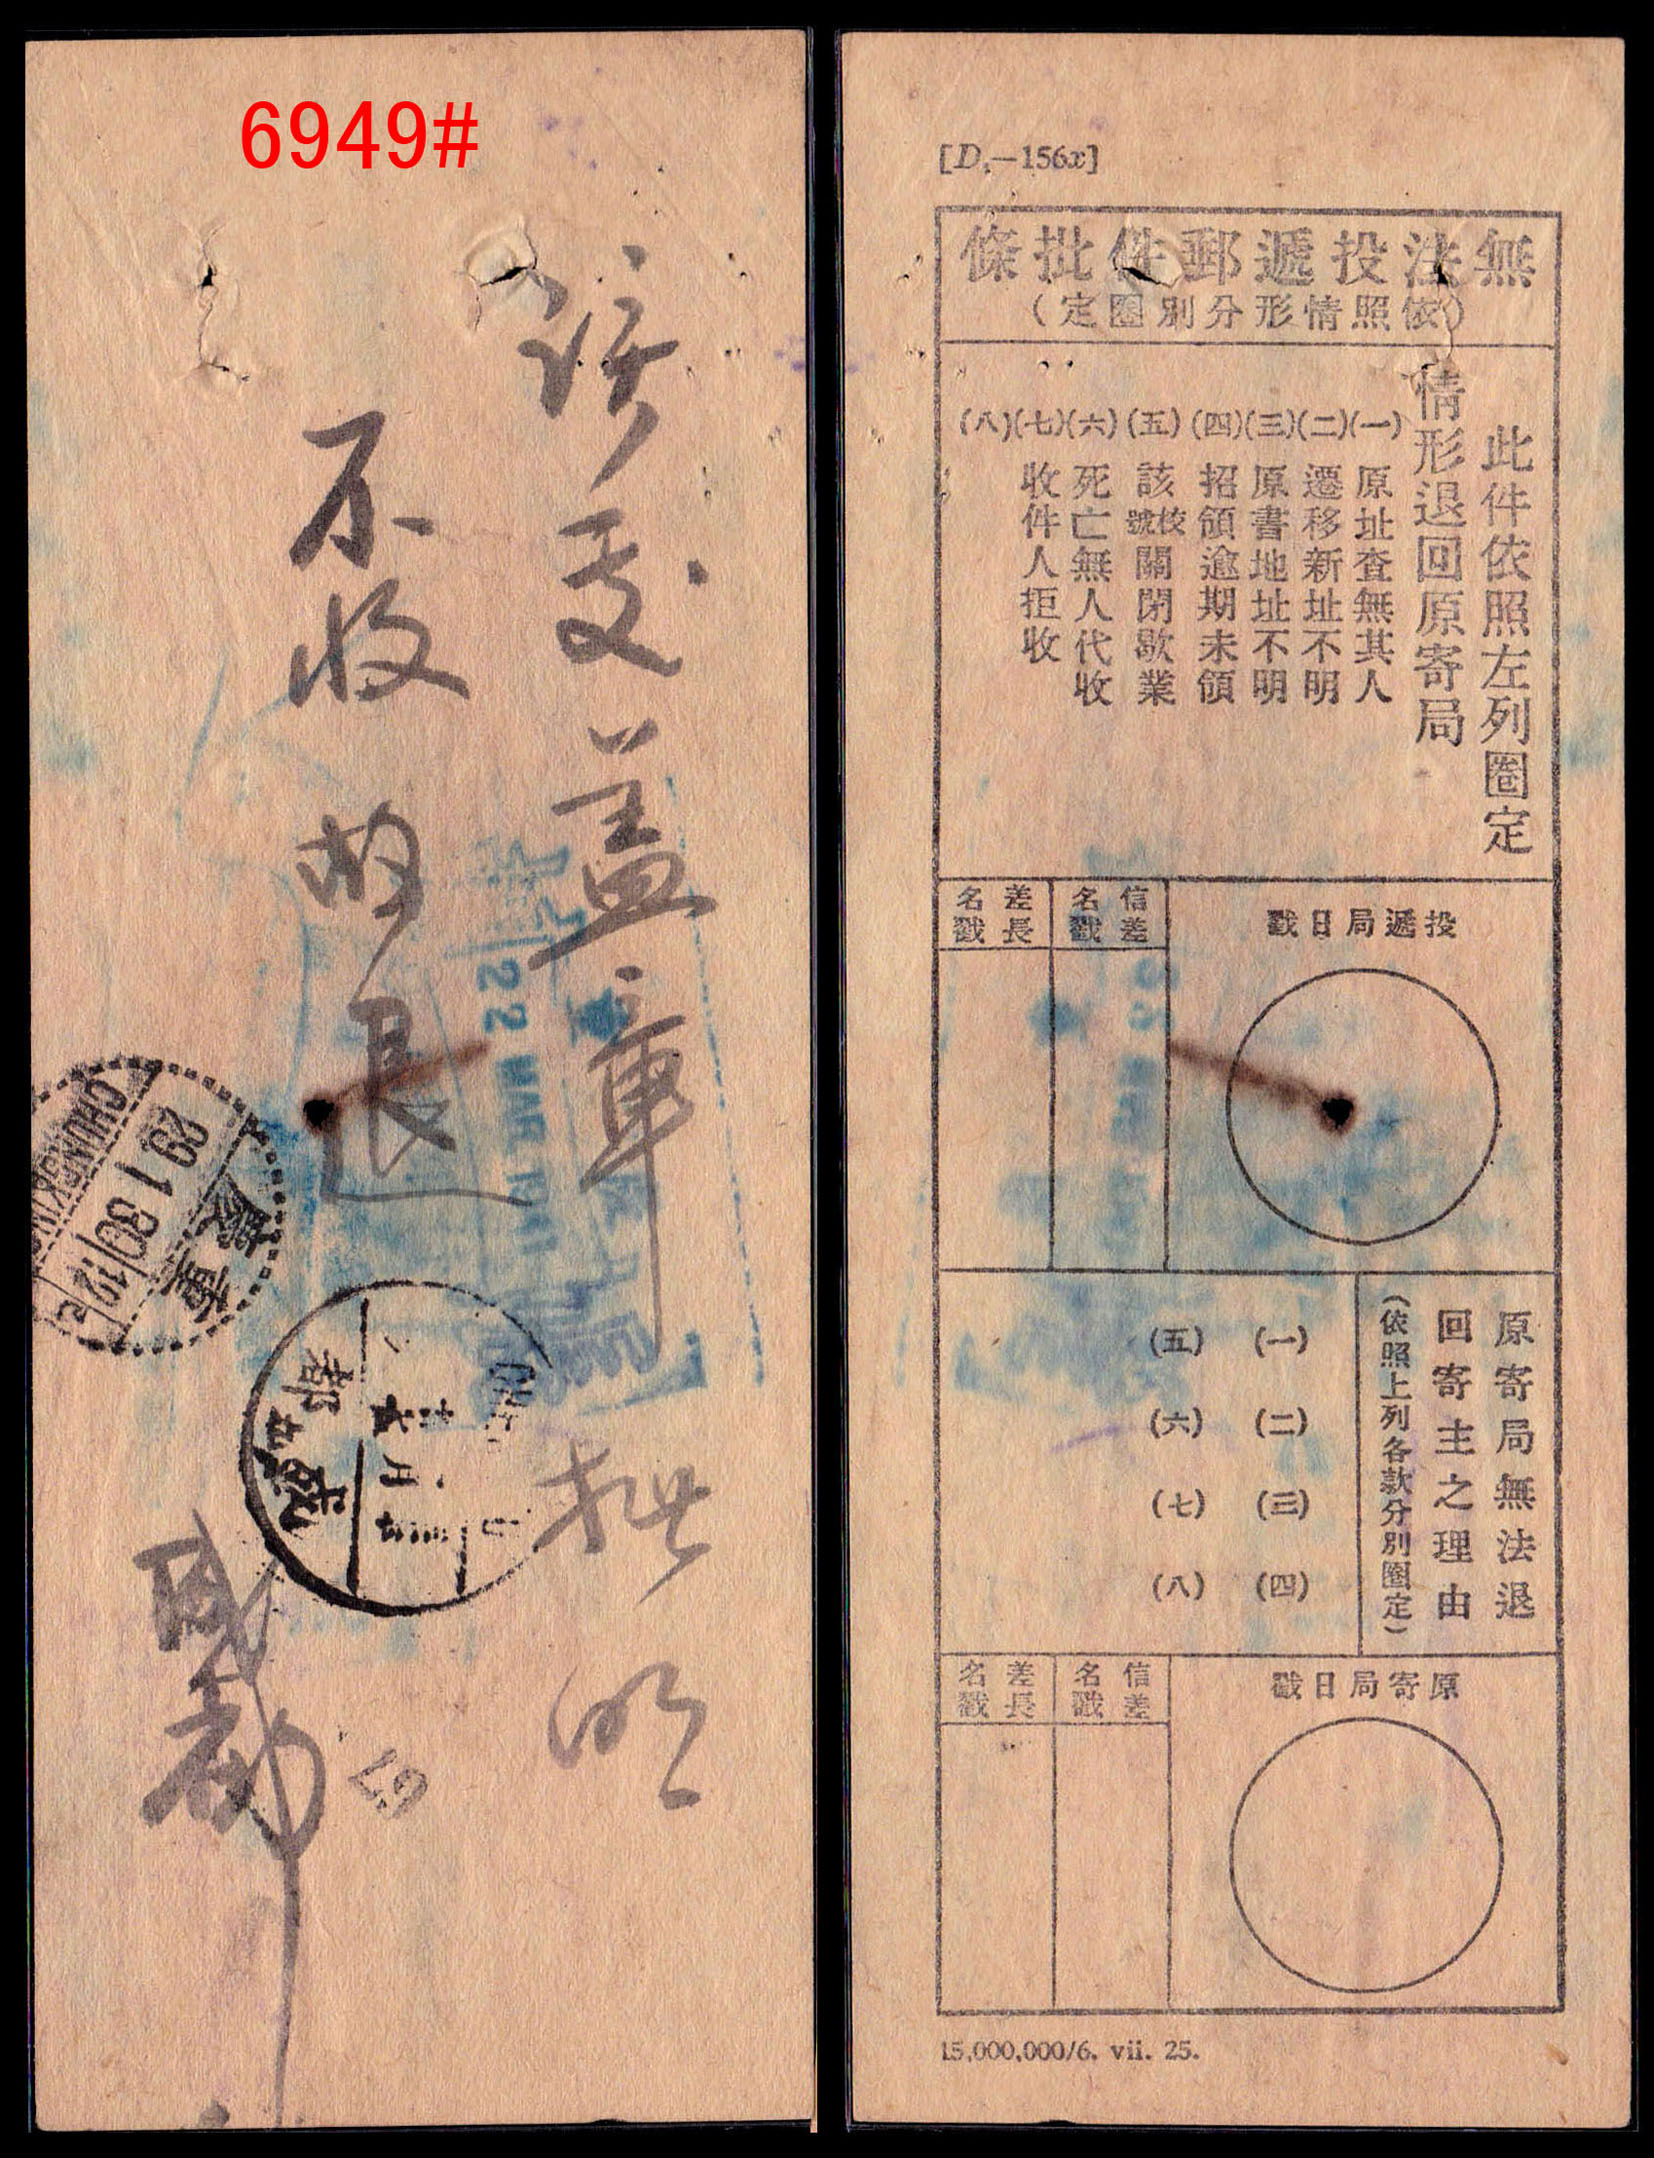 6949#
該受盖章
不收
批明
CHUNGKING
29 1 30 12
重慶
成都
六月
67
22 MAR 1941
[D.—156x]
無法投遞郵件批條
(依照情形分別圈定)
此件依照左列圈定
情形退回原寄局
(一)原址查無其人
(二)遷移新址不明
(三)原書地址不明
(四)招領逾期未領
(五)該校號關閉歇業
(六)死亡無人代收
(七)收件人拒收
(八)
投遞局日戳
信差名戳
差長名戳
原寄局無法退
回寄主之理由
(依照上列各款分別圈定)
(一)
(二)
(三)
(四)
(五)
(六)
(七)
(八)
原寄局日戳
信差名戳
差長名戳
15,000,000/6. vii. 25.